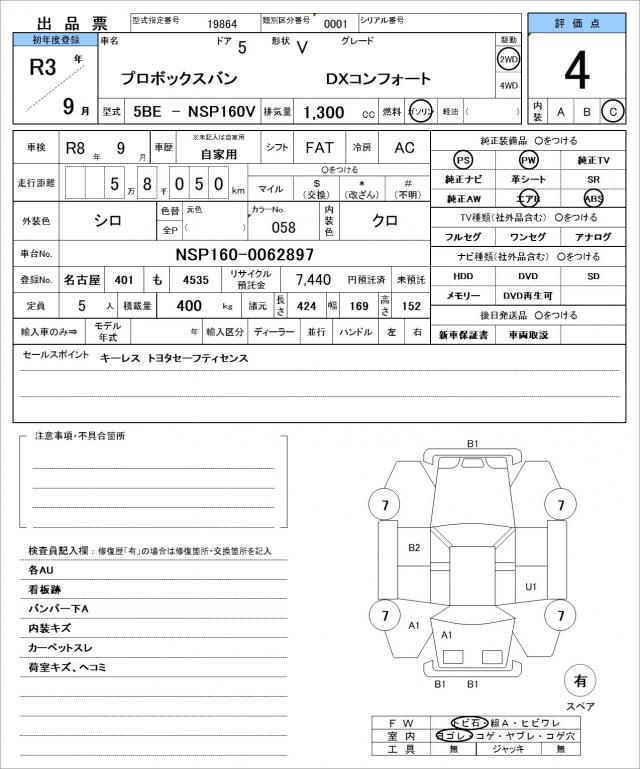 出品票 型式指定番号 19864 類別区分番号 0001 シリアル番号
評価点
4
内装 A B C
初年度登録
R3 年
9 月
車名 ドア 5 形状 V グレード
プロボックスバン DXコンフォート
駆動
2WD
4WD
型式 5BE － NSP160V 排気量 1,300 cc 燃料 ガソリン 軽油 ( )
車検 R8 年 9 月 車歴 ※未記入は自家用 自家用 シフト FAT 冷房 AC
走行距離 5 万 8 千 0 5 0 km
〇をつける
マイル $ (交換) * (改ざん) # (不明)
外装色 シロ 色替 全P 元色 ( ) カラーNo. 058 内装色 クロ
車台No. NSP160-0062897
登録No. 名古屋 401 も 4535 リサイクル預託金 7,440 円預託済 未預託
定員 5 人 積載量 400 kg 諸元 長さ 424 幅 169 高さ 152
輸入車のみ⇒ モデル年式 年 輸入区分 ディーラー 並行 ハンドル 左 右
純正装備品 〇をつける
PS PW 純正TV
純正ナビ 革シート SR
純正AW エアB ABS
TV種類(社外品含む) 〇をつける
フルセグ ワンセグ アナログ
ナビ種類(社外品含む) 〇をつける
HDD DVD SD
メモリー DVD再生可
後日発送品 〇をつける
新車保証書 車両取説
セールスポイント キーレス トヨタセーフティセンス
注意事項・不具合箇所
検査員記入欄：修復歴「有」の場合は修復箇所・交換箇所を記入
各AU
看板跡
バンパー下A
内装キズ
カーペットスレ
荷室キズ、ヘコミ
B1
7 7
B2
U1
7 7
A1
A1
B1 B1
有
スペア
FW トビ石・線A・ヒビワレ
室内 ヨゴレ・コゲ・ヤブレ・コゲ穴
工具 無 ジャッキ 無